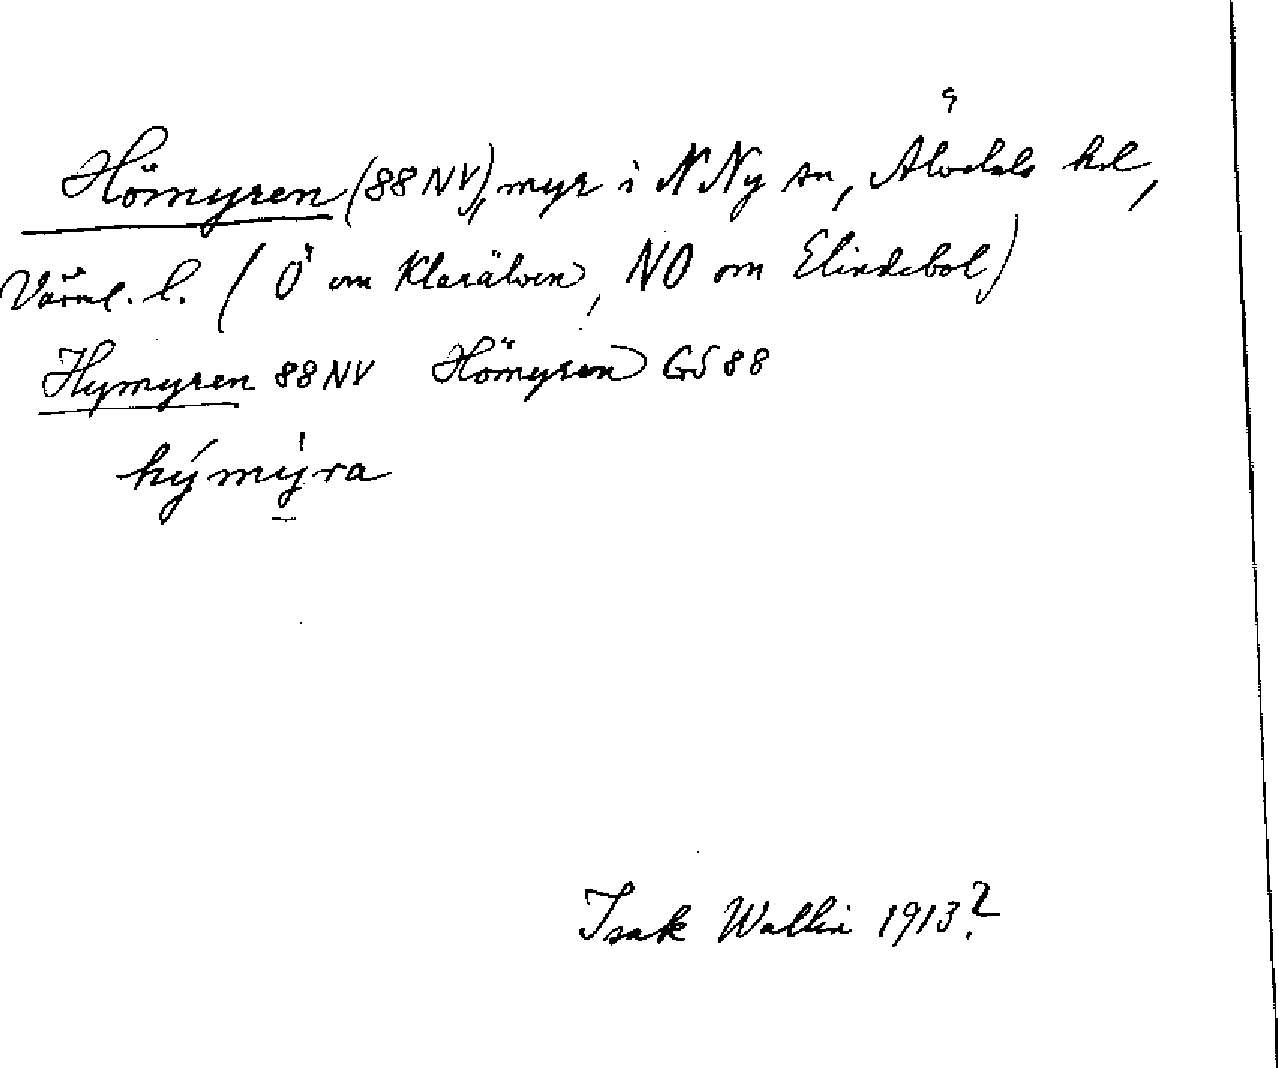 Hömyren (88 NV), myr i N Ny sn, Älvdals hd,
Värml. l. (Ö om Klarälven, NO om Elindebol)
Hymyren 88 NV Hömyren GS 88
hýmýra
Isak Wallin 1913?